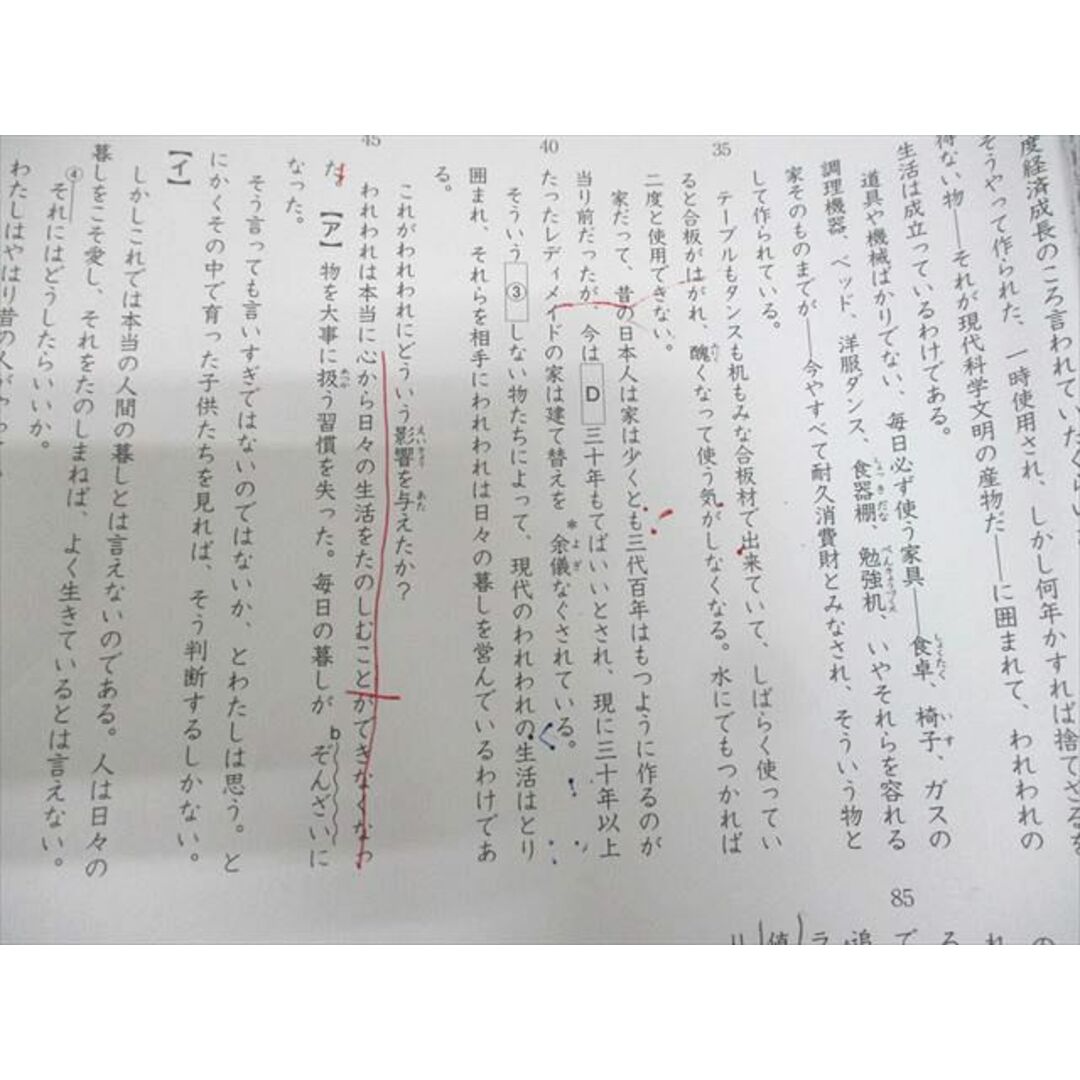 度経済成長のころ言われていたくらい
そうやって作られた、一時使用され、しかし何年かすれば捨てざるを
得ない物――それが現代科学文明の産物だ――に囲まれて、われわれの
生活は成立っているわけである。
道具や機械ばかりでない、毎日必ず使う家具――食卓、椅子、ガスの
調理機器、ベッド、洋服ダンス、食器棚、勉強机、いやそれらを容れる
家そのものまでが――今やすべて耐久消費財とみなされ、そういう物と
して作られている。
35
テーブルもタンスも机もみな合板材で出来ていて、しばらく使ってい
ると合板がはがれ、醜くなって使う気がしなくなる。水にでもつかれば
二度と使用できない。
家だって、昔の日本人は家は少くとも三代百年はもつように作るのが
当り前だったが、今は D 三十年もてばいいとされ、現に三十年以上
40
たったレディメイドの家は建て替えを*余儀なくされている。
そういう ③ しない物たちによって、現代のわれわれの生活はとり
囲まれ、それらを相手にわれわれは日々の暮しを営んでいるわけであ
る。
これがわれわれにどういう影響を与えたか?
45
われわれは本当に心から日々の生活をたのしむことができなくなっ
た。【ア】物を大事に扱う習慣を失った。毎日の暮しが bぞんざいに
なった。
そう言っても言いすぎではないのではないか、とわたしは思う。と
にかくその中で育った子供たちを見れば、そう判断するしかない。
【イ】
しかしこれでは本当の人間の暮しとは言えないのである。人は日々の
暮しをこそ愛し、それをたのしまねば、よく生きているとは言えない。
④それにはどうしたらいいか。
わたしはやはり昔の人が
85